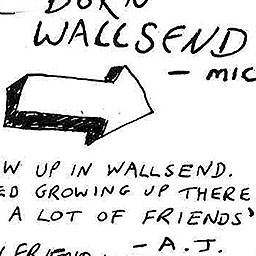 BORN
WALLSEND
- MIC
W UP IN WALLSEND.
ED GROWING UP THERE
A LOT OF FRIENDS'
- A.J.
FRIEND